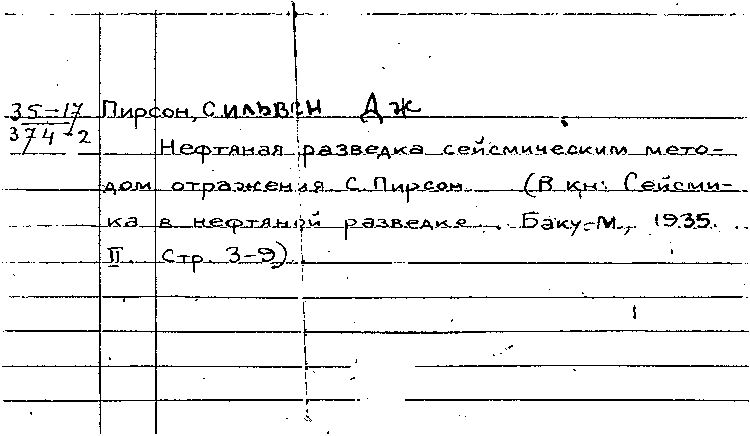 35-17
374-2
Пирсон, Сильвен Дж
Нефтяная разведка сейсмическим мето-
дом отражения С. Пирсон (В кн: Сейсми-
ка в нефтяной разведке. Баку-М., 1935.
II. Стр. 3-9)